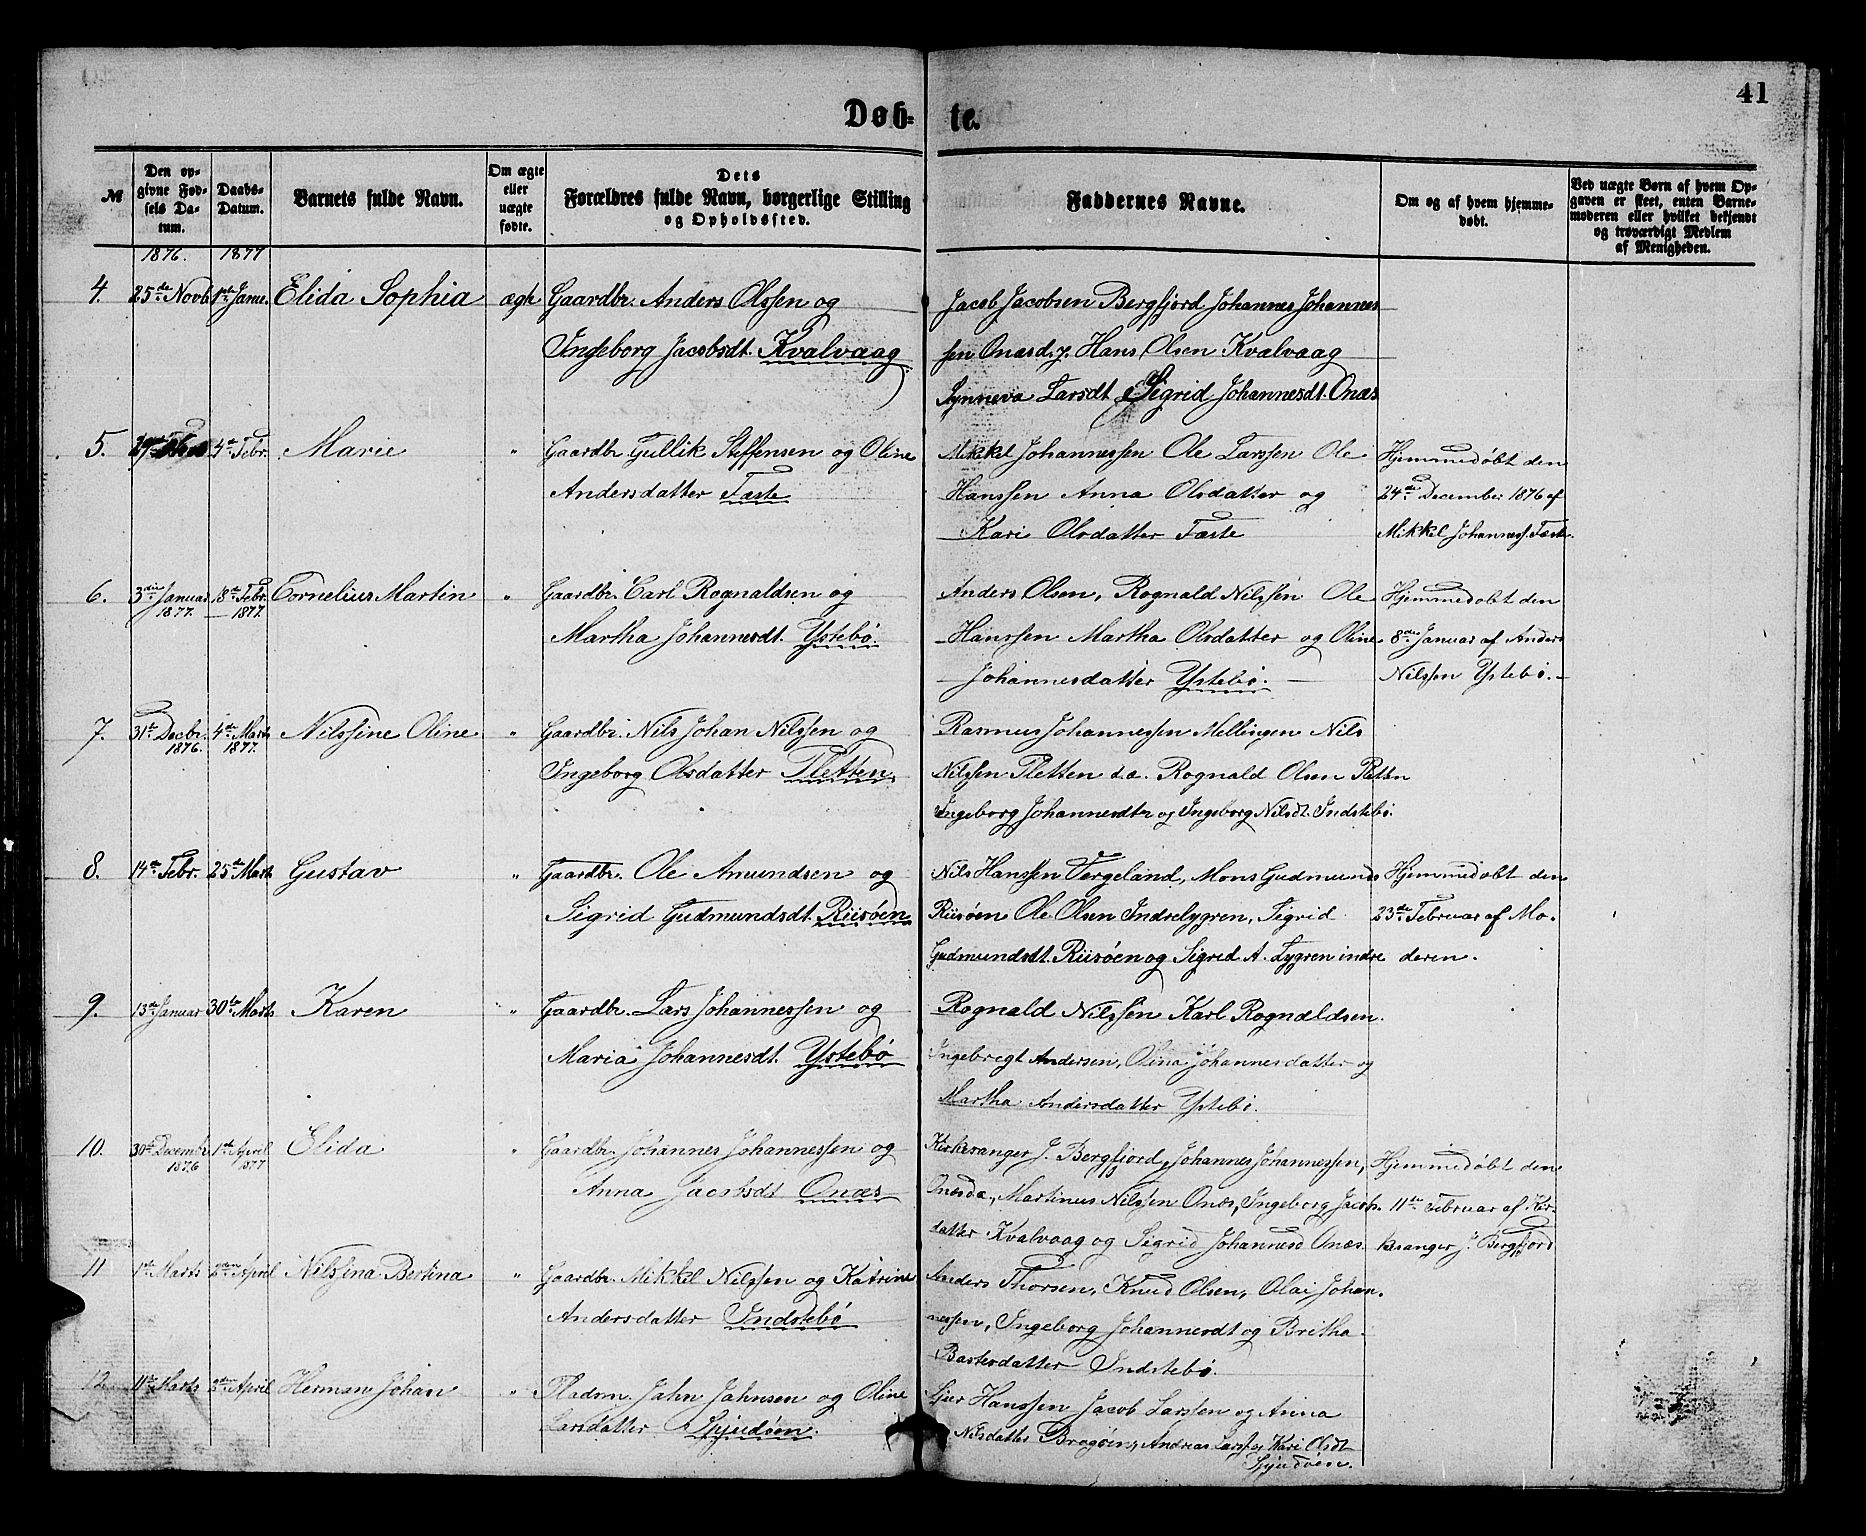 41
Døb-
te.
№
Den op-
givne Fød-
sels Da-
tum.
Daabs-
Datum.
Barnets fulde Navn.
Om ægte
eller
uægte
fødte.
Dets
Forældres fulde Navn, borgerlige Stilling
og Opholdssted.
Faddernes Navne.
Om og af hvem hjemme-
døbt.
Ved uægte Børn af hvem Op-
gaven er skeet, enten Barne-
moderen eller hvilket bekjendt
og troværdigt Medlem
af Menigheden.
1876. 1877
4. 25de Novb 1ste Janu. Elida Sophia ægte Gaardbr. Anders Olssen og
Ingeborg Jacobsdt. Kvalvaag
Jacob Jacobsen Bergfjord Johannes Johannes
sen Onæsd.y. Hans Olsen Kvalvaag
Synneva Larsdt Sigrid Johannesdt. Onæs
5. 4de Febr. Marie " Gaardbr Gullik Steffensen og Oline
Andersdatter Fæste
Mikkel Johannessen Ole Larssen Ole
Hanssen Anna Olsdatter og
Kari Olsdatter Fæste
Hjemmedøbt den
24de December 1876 af
Mikkel Johanness. Fæste.
6. 3die Januar 18de Febr. Cornelius Martin " Gaardbr. Carl Rognaldsen og
1877. 1877.
Martha Johannesdt. Ystebø.
Anders Olsen, Rognald Nilssen Ole
Hanssen Martha Olsdatter og Oline
Johannesdatter Ystebø.
Hjemmedøbt den
8de Januar af Anders
Nilssen Ystebø.
7. 31te Decbr. 4de Marts Nilssine Oline " Gaardbr. Nils Johan Nilssen og
1876. 1877.
Ingeborg Olsdatter Fletten.
Rasmus Johannessen Mellingen Nils
Nilssen Fletten d.æ. Rognald Olsen Fletten
Ingeborg Johannesdtr og Ingeborg Nilsdt. Indstebø.
8. 14de Febr. 25de Marts Gustav " Gaardbr. Ole Amundsen og
Sigrid Gudmundsdt. Riisøen
Nils Hanssen Fergeland, Mons Gudmunds
Riisøen Ole Olsen Indrelygren, Sigrid
Gudmundsdt. Riisøen og Sigrid A. Lygren indre
Hjemmedøbt den
23de Februar af Mo-
deren.
9. 13de Januar 30te Marts Karen " Gaardbr. Lars Johannessen og
Maria Johannesdt. Ystebø
Rognald Nilssen Karl Rognaldsen.
Ingebregt Andersen, Olina Johannesdatter og
Martha Andersdatter Ystebø.
10. 30te Decembr 1ste April Elida " Gaardbr. Johannes Johannessen og
1876 1877
Anna Jacobsdt Onæs
Kirkesanger J. Bergfjord, Johannes Johannessen,
Onæsdæ, Martinus Nilssen Onæs, Ingeborg Jacobs
datter Kvalvaag og Sigrid Johannesd Onæs
Hjemmedøbt den
11te Februar af Kir-
kesanger J. Bergfjord
11 1ste Marts 2den April Nilssina Bertina " Gaardbr. Mikkel Nilssen og Katrine
Andersdatter Indstebø
Anders Thorsen, Knud Olsen, Olai Johan-
nessen, Ingeborg Johannesdt og Britha
Bastesdatter Indstebø.
12. 11te Marts 2den April Herman Johan " Pladsm. Jahn Jahnsen og Oline
Larsdatter Spjudøen.
Sjer Hanssen Jacob Larssen og Anna
Nilsdatter Bragøen, Andreas Larss og Kari Olsdt
Spjudøen.